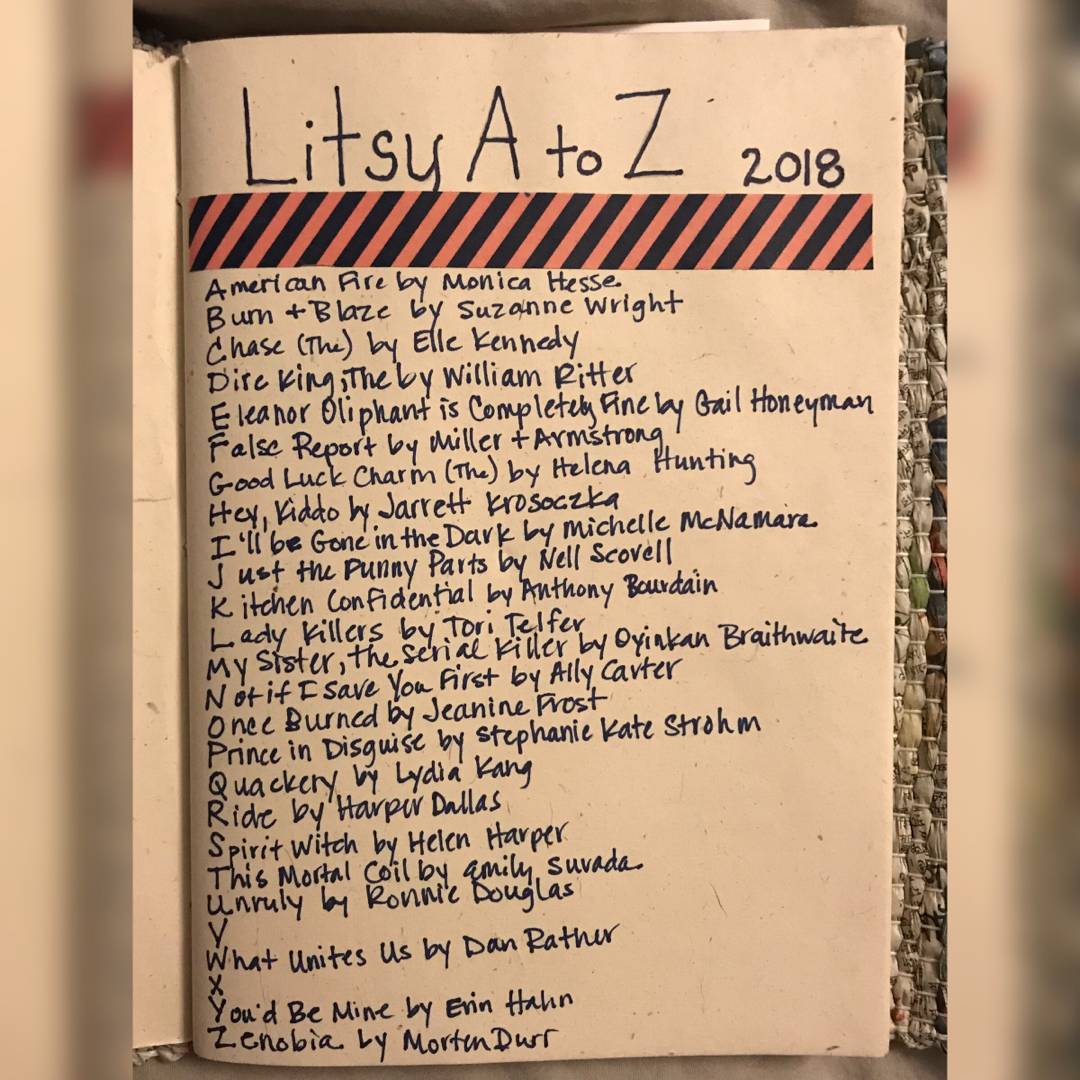 Litsy A to Z 2018
American Fire by Monica Hesse
Burn + Blaze by Suzanne Wright
Chase (The) by Elle Kennedy
Dire King, The by William Ritter
Eleanor Oliphant is Completely Fine by Gail Honeyman
False Report by Miller + Armstrong
Good Luck Charm (The) by Helena Hunting
Hey, Kiddo by Jarrett Krosoczka
I'll be Gone in the Dark by Michelle McNamara
Just the Funny Parts by Nell Scovell
Kitchen Confidential by Anthony Bourdain
Lady Killers by Tori Telfer
My Sister, the Serial Killer by Oyinkan Braithwaite
Not if I Save You First by Ally Carter
Once Burned by Jeanine Frost
Prince in Disguise by Stephanie Kate Strohm
Quackery by Lydia Kang
Ride by Harper Dallas
Spirit Witch by Helen Harper
This Mortal Coil by Emily Suvada
Unruly by Ronnie Douglas
V
What Unites Us by Dan Rather
X
You'd Be Mine by Erin Hahn
Zenobia by Morten Durr